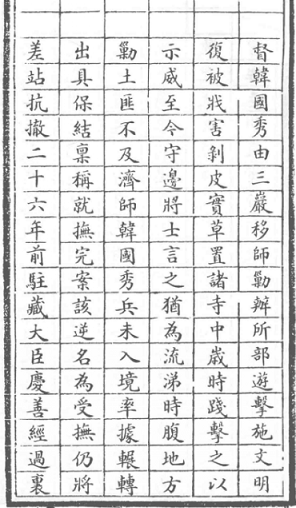 督韓國秀由三巖移師勦辦所部遊擊施文明
復被戕害剝皮實草置諸寺中歲時踐擊之以
示威至今守邊將士言之猶為流涕時腹地方
勦土匪不及濟師韓國秀兵未入境率據輾轉
出具保結稟稱就撫完案該逆名為受撫仍將
差站抗撤二十六年前駐藏大臣慶善經過裏